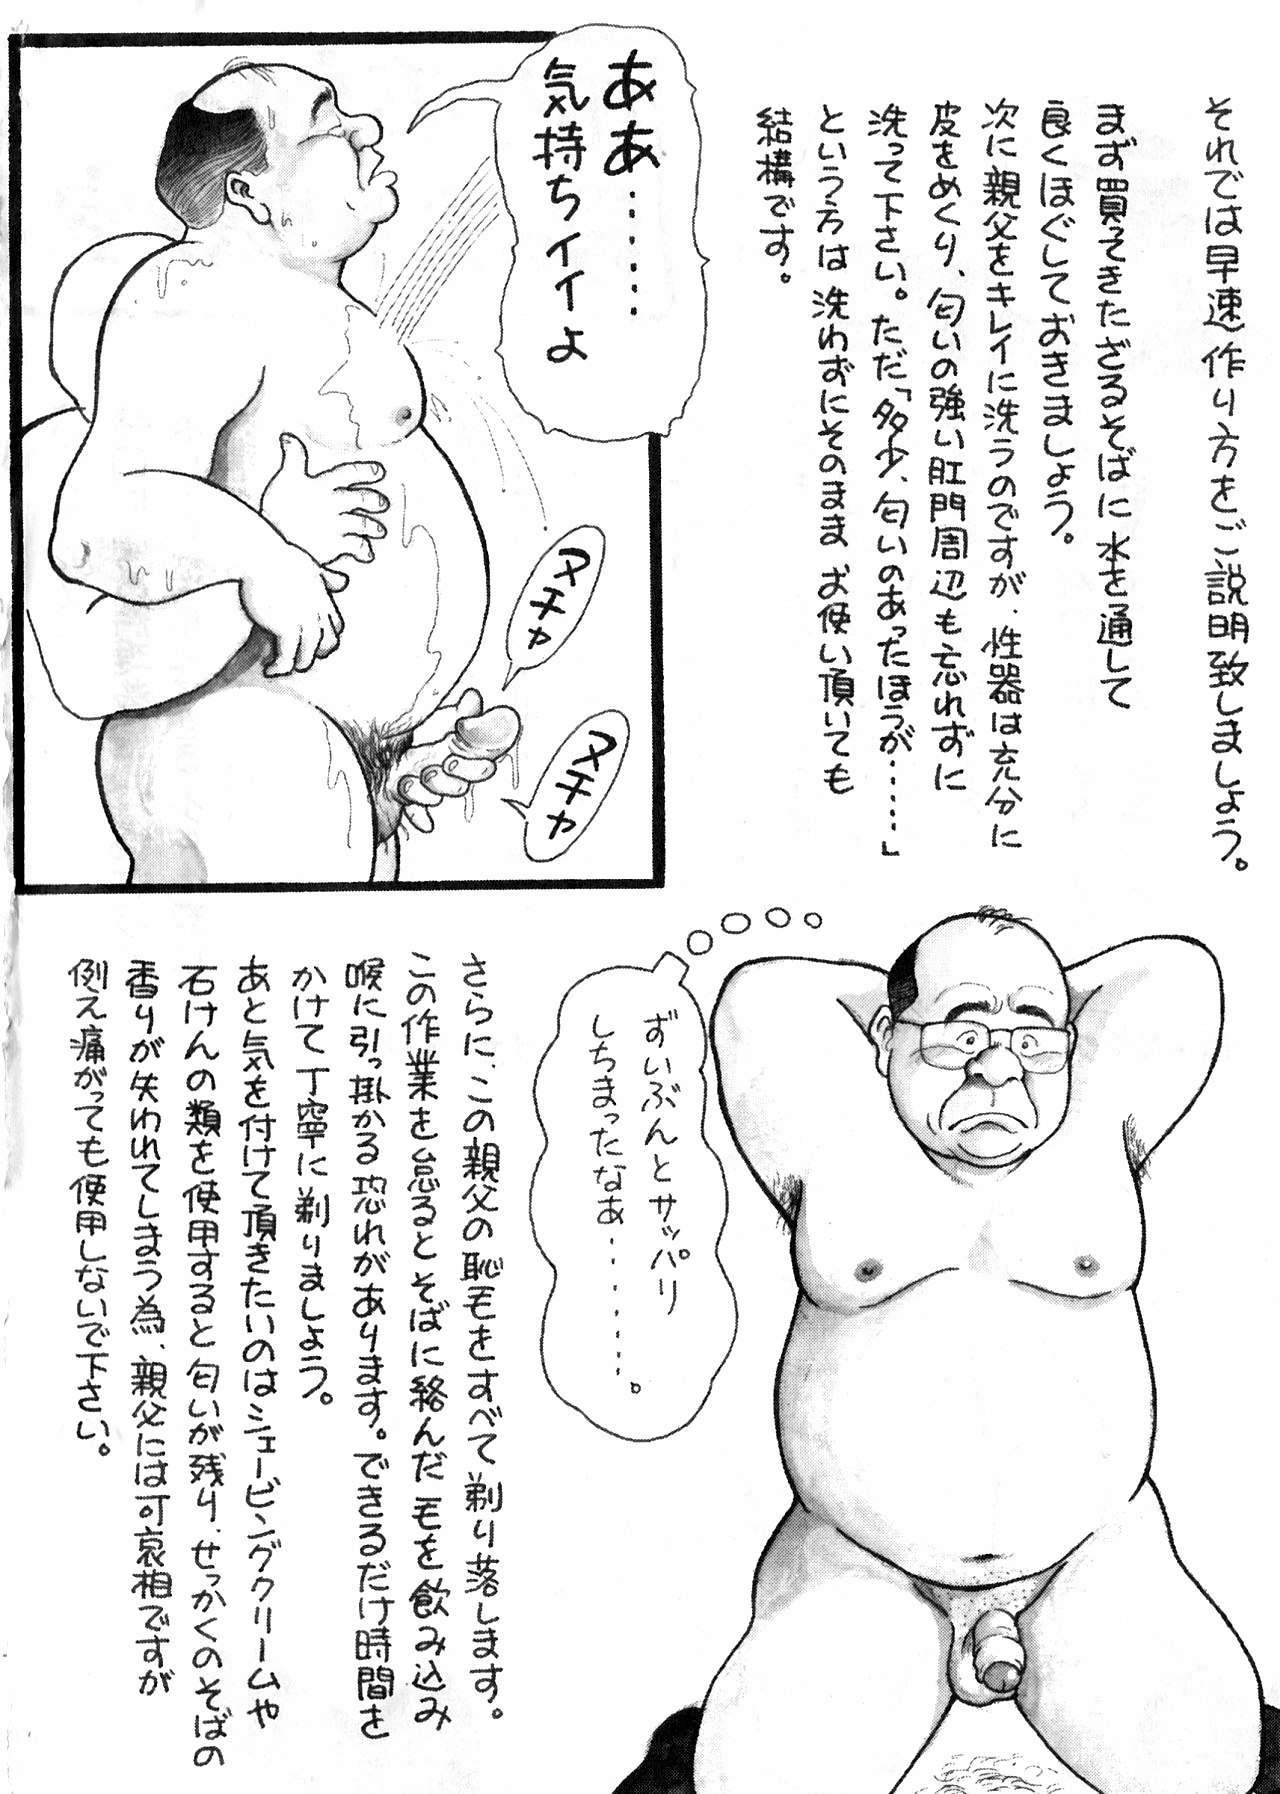 それでは早速作り方をご説明致しましょう。
まず買ってきたざるそばに水を通して
良くほぐしておきましょう。
次に親父をキレイに洗うのですが、性器は充分に
皮をめくり、匂いの強い肛門周辺も忘れずに
洗って下さい。ただ「多少、匂いのあったほうが……」
という方は洗わずにそのまま、お使い頂いても
結構です。
ああ……
気持ちイイよ
ヌチャ
ヌチャ
ずいぶんとサッパリ
しちまったなあ……。
さらに、この親父の恥毛をすべて剃り落します。
この作業を怠るとそばに絡んだ毛を飲み込み
喉に引っ掛かる恐れがあります。できるだけ時間を
かけて丁寧に剃りましょう。
あと気を付けて頂きたいのはシェービングクリームや
石けんの類を使用すると匂いが残り、せっかくのそばの
香りが失われてしまう為、親父には可哀相ですが
例え痛がっても使用しないで下さい。